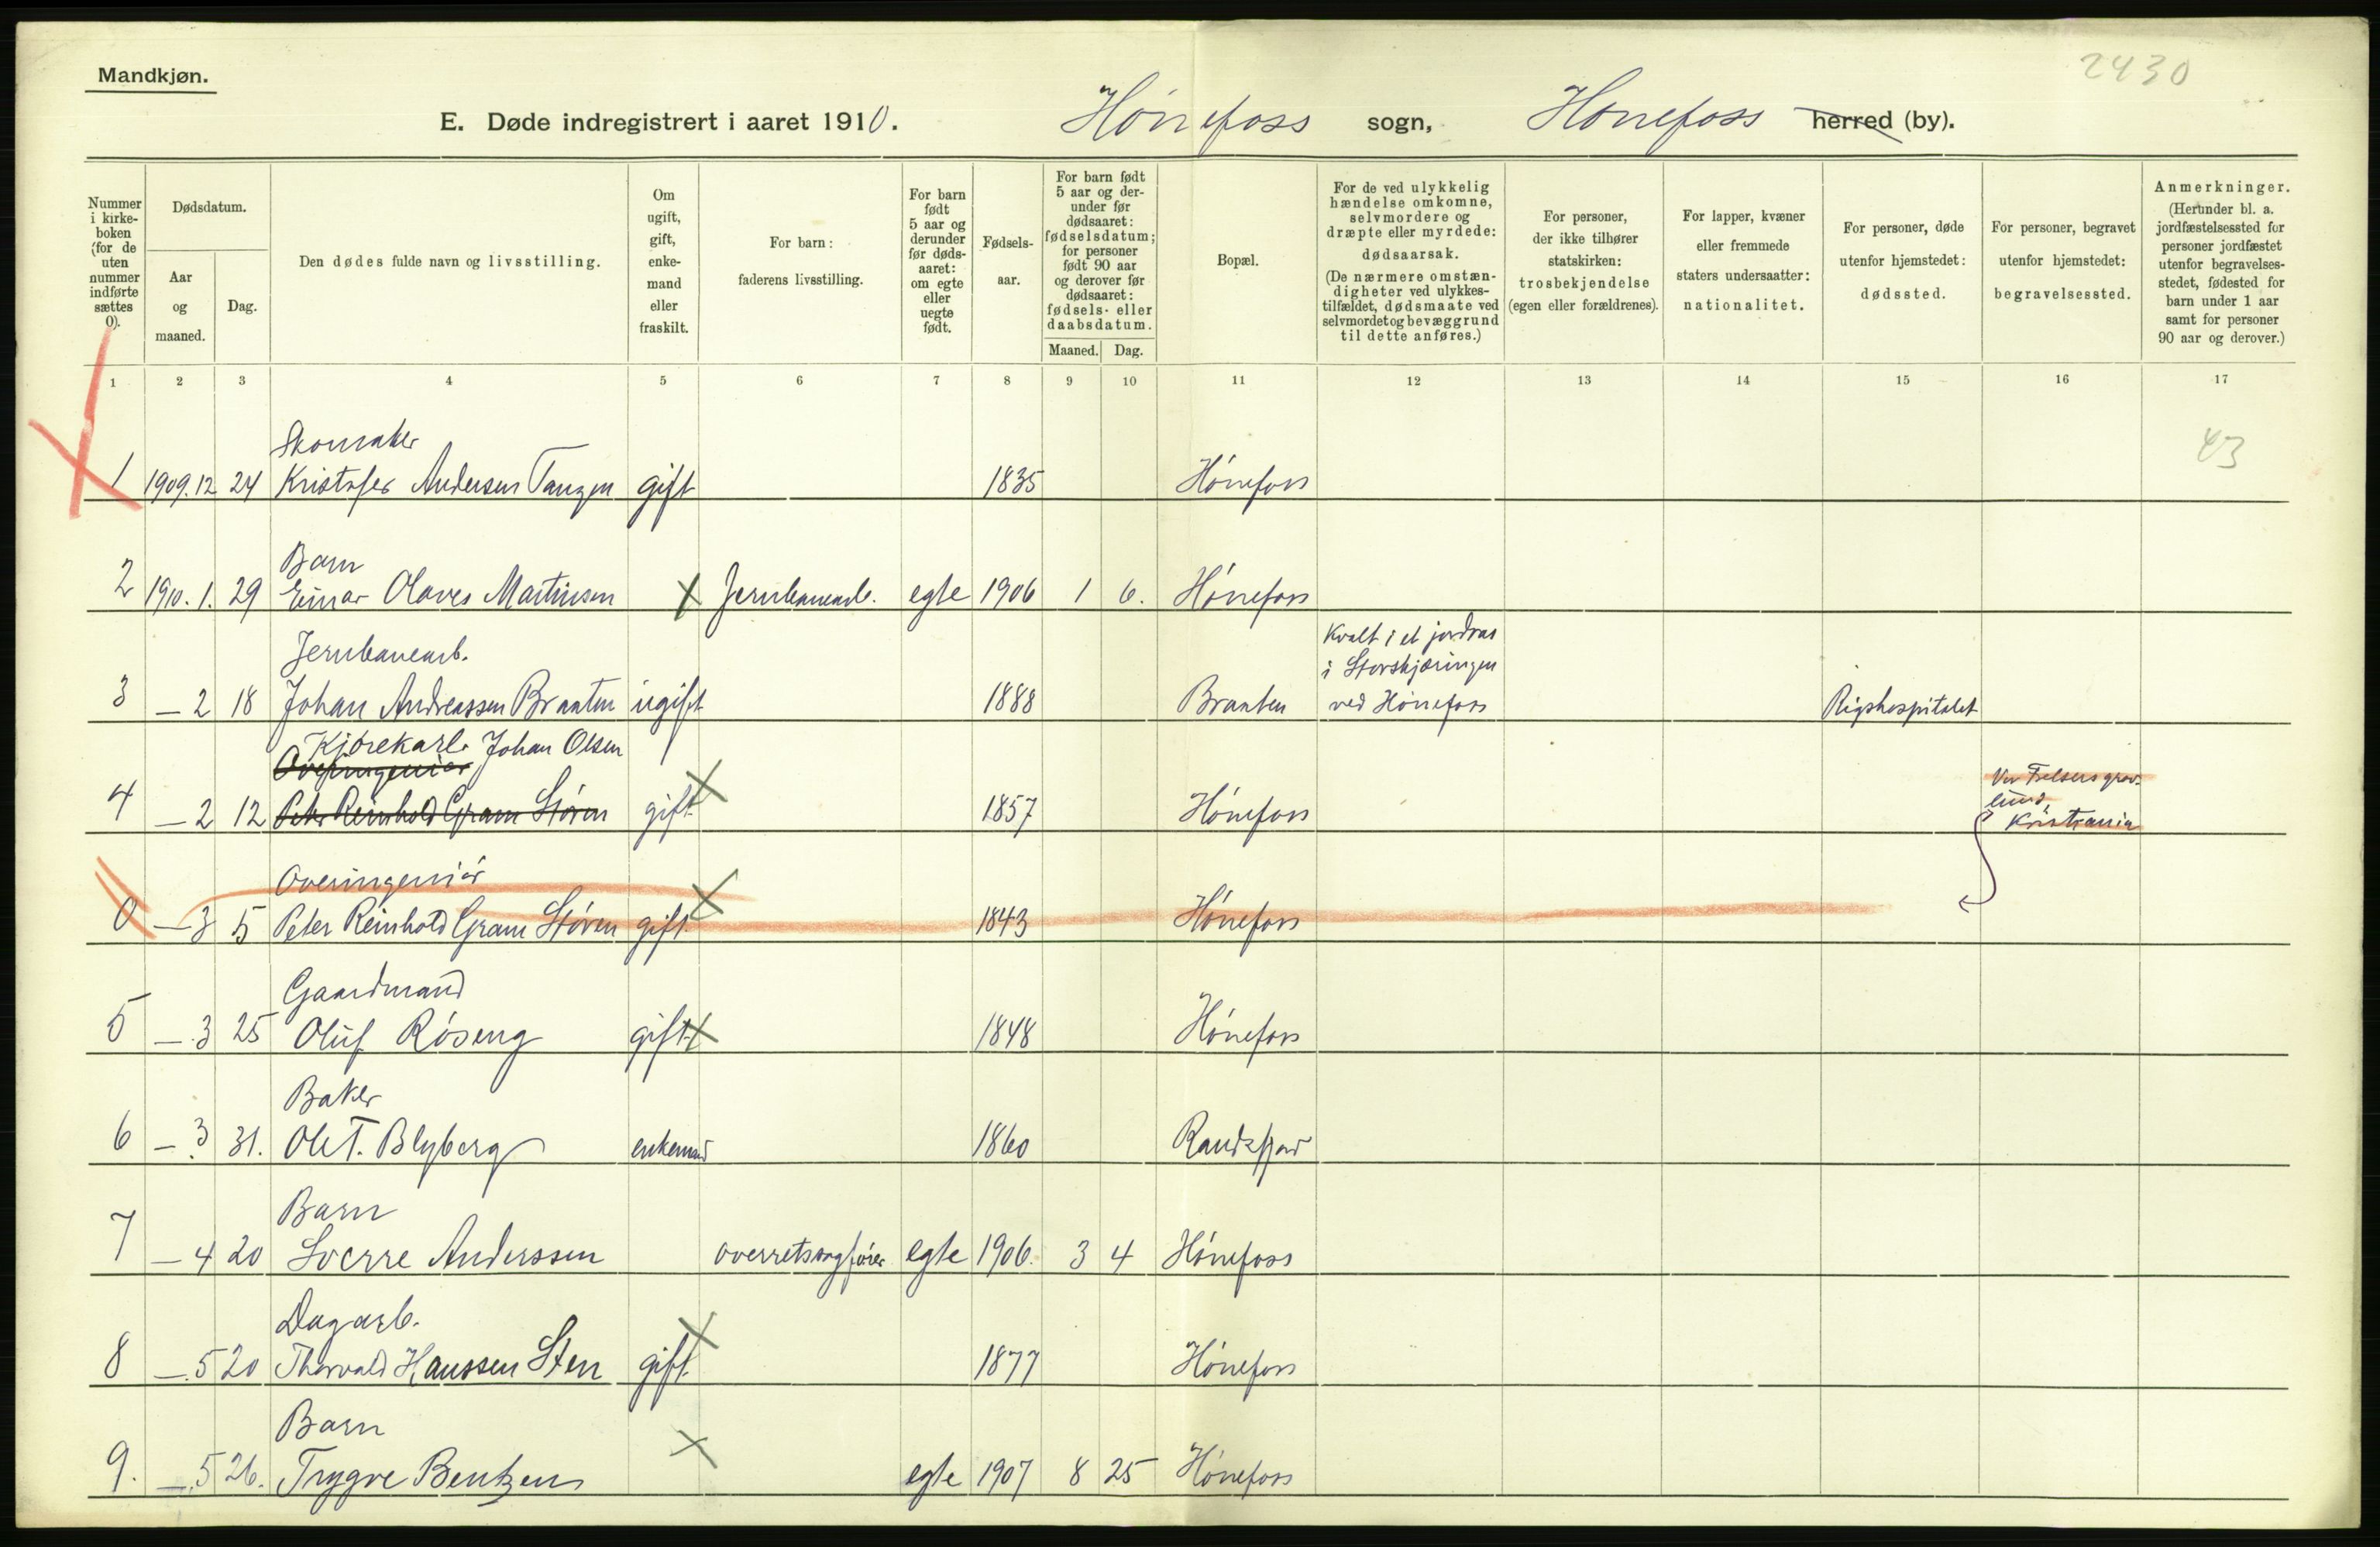 2430
Mandkjøn.
E. Døde indregistrert i aaret 1910. Hønefoss sogn, Hønefoss herred (by).
Nummer i kirke- boken (for de uten nummer indførte sættes 0).
Dødsdatum.
Aar og maaned.
Dag.
Den dødes fulde navn og livsstilling.
Om ugift, gift, enke- mand eller fraskilt.
For barn: faderens livsstilling.
For barn født 5 aar og derunder før døds- aaret: om egte eller uegte født.
Fødsels- aar.
For barn født 5 aar og der- under før dødsaaret: fødselsdatum; for personer født 90 aar og derover før dødsaaret: fødsels- eller daabsdatum.
Maaned. Dag.
Bopæl.
For de ved ulykkelig hændelse omkomne, selvmordere og dræpte eller myrdede: dødsaarsak. (De nærmere omstæn- digheter ved ulykkes- tilfældet, dødsmaate ved selvmordet og bevæggrund til dette anføres.)
For personer, der ikke tilhører statskirken: trosbekjendelse (egen eller forældrenes).
For lapper, kvæner eller fremmede staters undersaatter: nationalitet.
For personer, døde utenfor hjemstedet: dødssted.
For personer, begravet utenfor hjemstedet: begravelsessted.
Anmerkninger. (Herunder bl. a. jordfæstelsessted for personer jordfæstet utenfor begravelses- stedet, fødested for barn under 1 aar samt for personer 90 aar og derover.)
1 2 3 4 5 6 7 8 9 10 11 12 13 14 15 16 17
Skomaker
43
1 1909.12 24 Kristofer Andersen Tangen gift 1835 Hønefoss
Barn
2 1910.1. 29 Einar Olaves Martinsen Jernbanearb. egte 1906 1 6. Hønefoss
Kvalt i et jordras
Jernbanearb.
i Storskjæringen
3 — 2 18 Johan Andreassen Braaten ugift 1888 Braaten ved Hønefoss Rigshospitalet
Kjørekarl. Johan Olsen
Overingeniør
Vor Frelsers grav-
lund,
4 — 2 12 Peter Reinhold Gram Støren gift 1857 Hønefoss Kristiania
Overingeniør
0 — 3 5 Peter Reinhold Gram Støren gift 1843 Hønefoss
Gaardmand
5 — 3 25 Oluf Røseng gift 1848 Hønefoss
Baker
6 — 3 31. Ole T. Blyberg enkemand 1860 Randsfjord
Barn
7 — 4 20 Sverre Anderssen overretssagfører egte 1906. 3 4 Hønefoss
Dagarb.
8 — 5 20 Thorvald Hanssen Sten gift 1877 Hønefoss
Barn
9. — 5 26. Trygve Bentzen egte 1907 8 25 Hønefoss